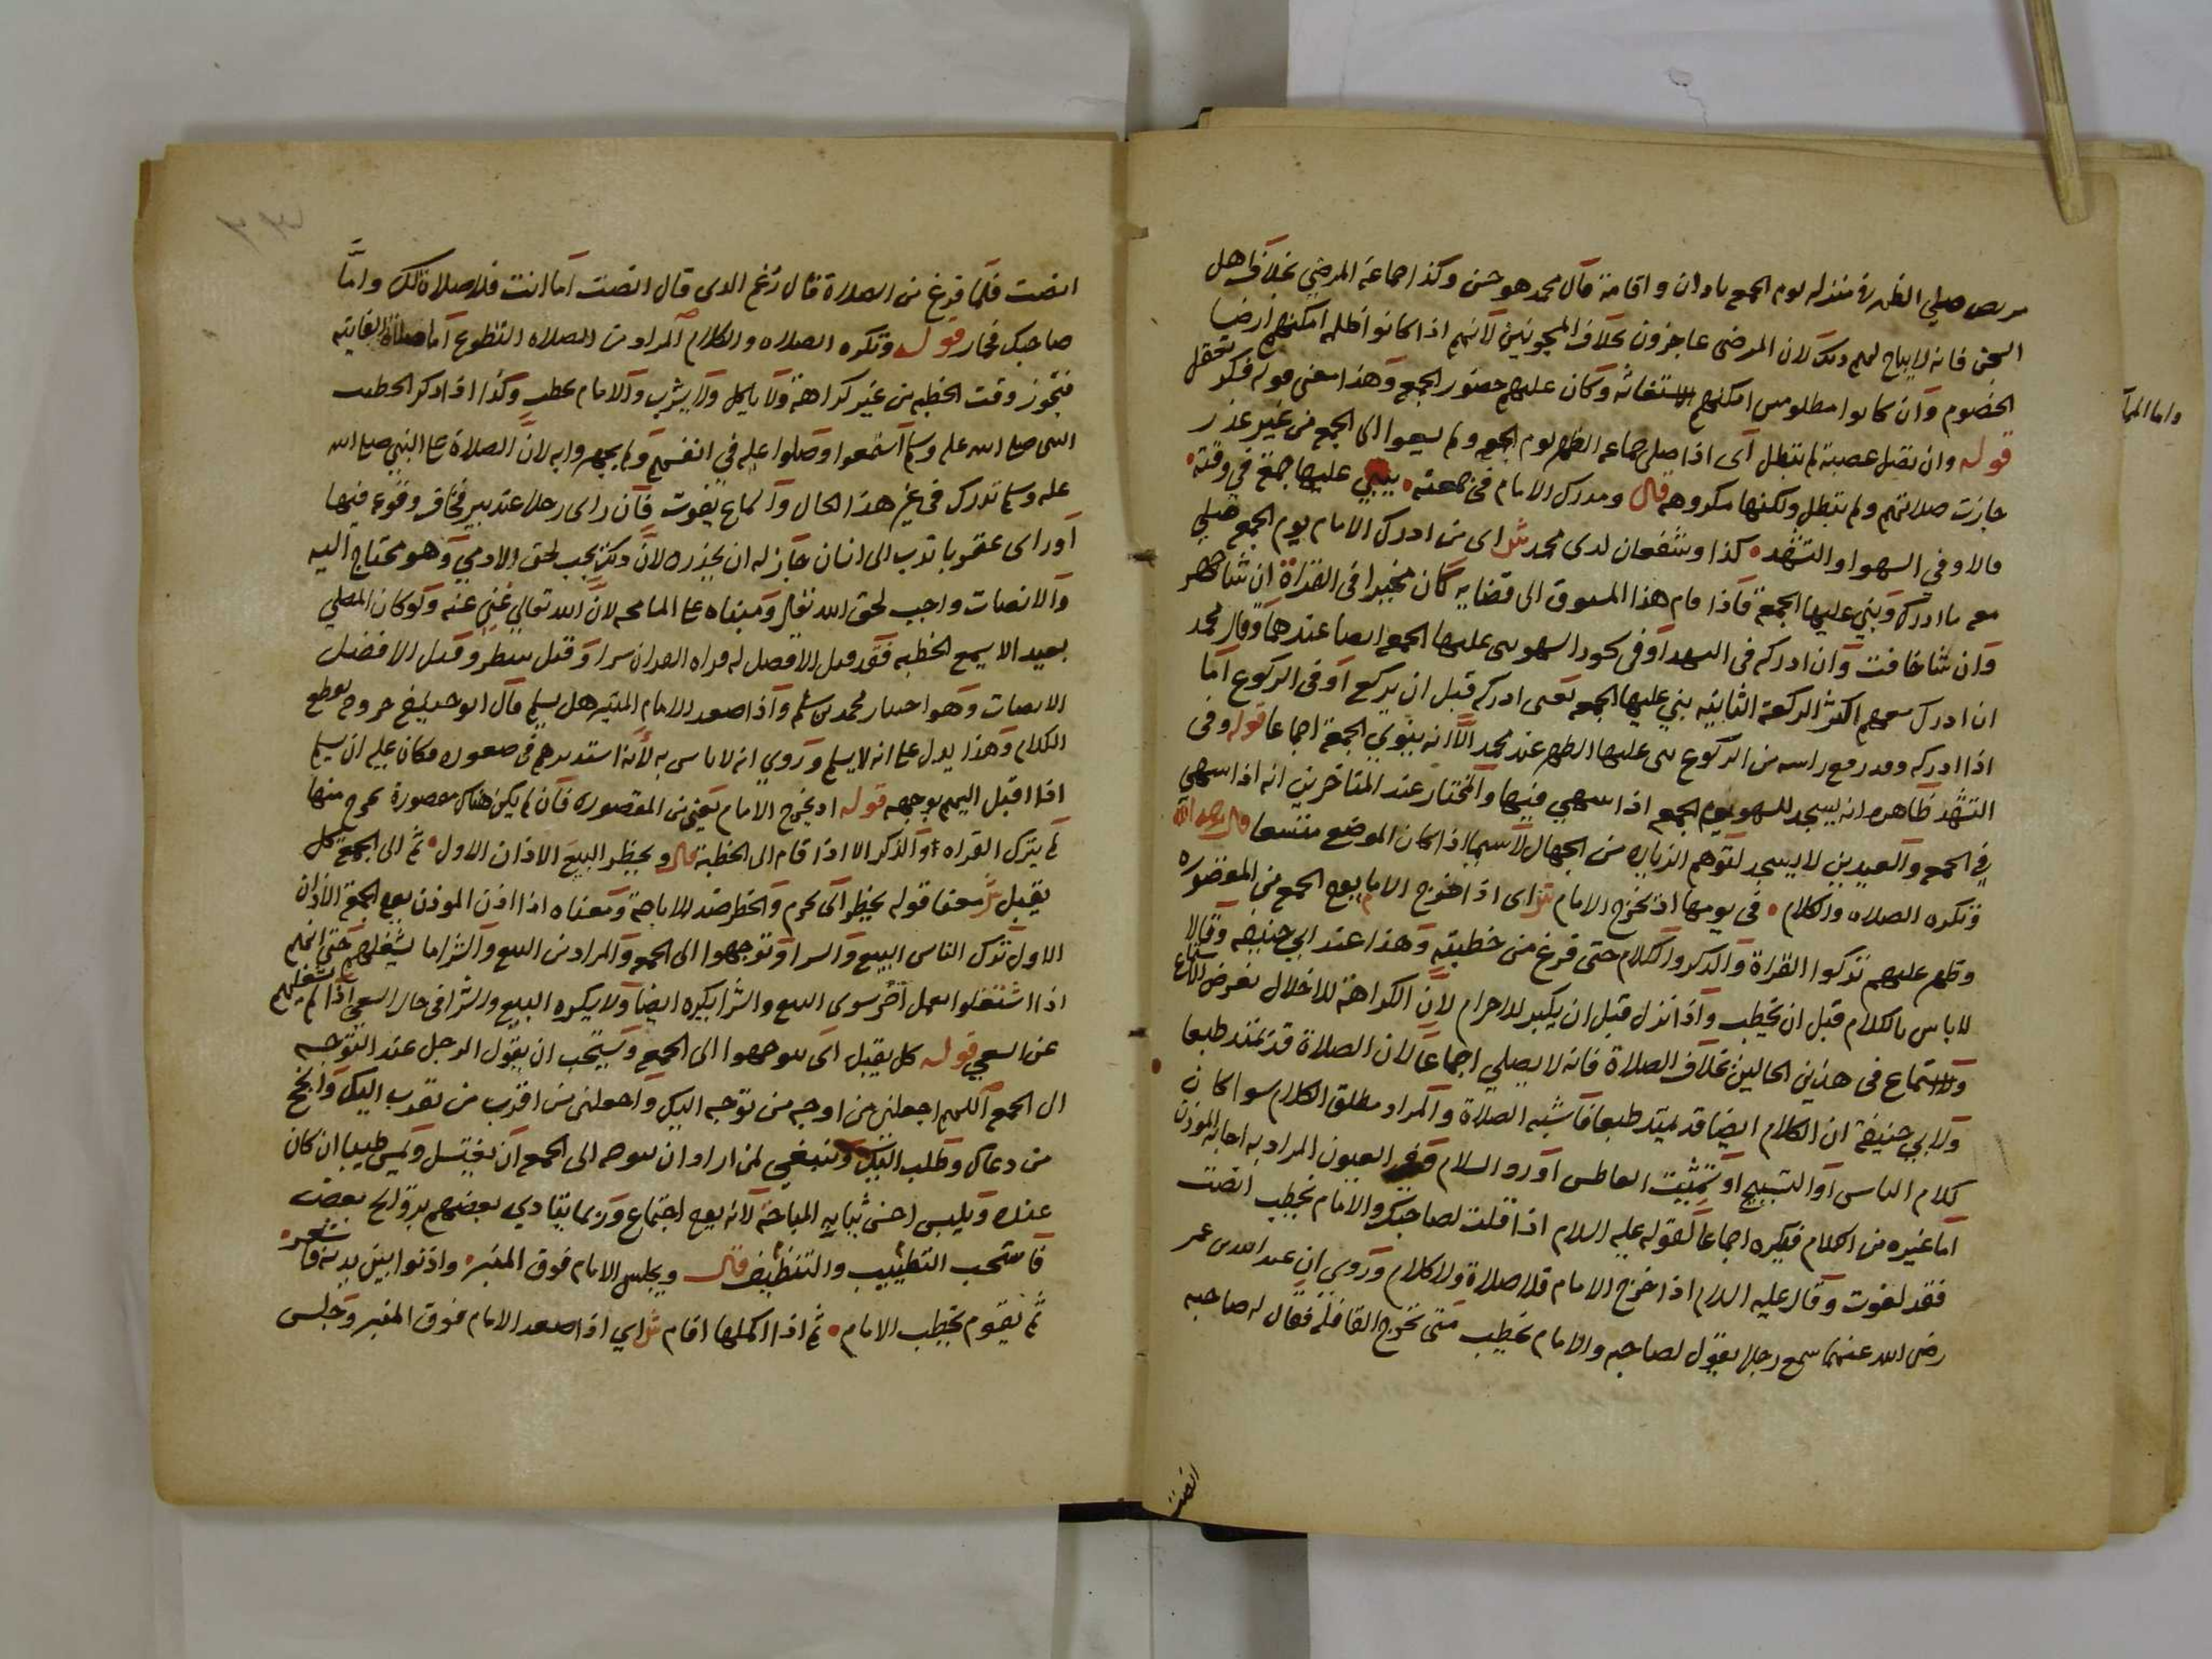 مريض صلي الظهر في منزله يوم الجمعة باذان واقامة قال محمد هو حسن وكذا جماعة المرضي بخلاف اهل
السجن فانه لا يباح لهم ذلك لان المرضى عاجزون بخلاف المسجونين لانهم اذا كانوا ظلمة امكنهم ارضا
الخصوم وان كانوا مظلومين امكنهم الاستغاثة وكان عليهم حضور الجمعة وهذا معنى قوله فكر تعقل
قوله وان تصل عصبة لم تبطل اى اذا صلى جماعة الظهر يوم الجمعة ولم يسعوا الى الجمعة من غير عذر
جازت صلاتهم ولم تبطل ولكنها مكروهة قال ومدرك الامام في جمعته يبني عليها جمعة في وقته
والا وفي السهو او التشهد كذا وشفعان لدى محمد ش اى من ادرك الامام يوم الجمعة صلي
معه ما ادرك وبني عليها الجمعة فاذا قام هذا المسبوق الى قضايه كان مخيرا في القراة ان شا جهر
وان شا خافت وان ادركه في التشهد او في سجود السهو بنى عليها الجمعة ايضا عندهما وقال محمد
ان ادرك معهم اكثر الركعة الثانية بني عليها الجمعة يعنى ادركه قبل ان يركع او في الركوع اما
اذا ادركه وقد رفع راسه من الركوع بنى عليها الظهر عند محمد الا انه ينوي الجمعة اجماعا قوله وفى
التشهد ظاهره انه يسجد للسهو يوم الجمعة اذا سهي فيها والمختار عند المتاخرين انه اذا سهي
في الجمعة والعيدين لا يسجد لتوهم الزيادة من الجهال لاسيما اذا كان الموضع متسعا قال رحمه الله
وتكره الصلاه والكلام في يومها اذ يخرج الامام ش اى اذا خرج الامام يوم الجمعة من المقصوره
وظهر عليهم تركوا القراة والذكر والكلام حتى فرغ من خطبته وهذا عند ابي حنيفه وقالا
لا باس بالكلام قبل ان يخطب واذا نزل قبل ان يكبر للاحرام لان الكراهة للاخلال بفرض الاستماع
ولا استماع في هذين الحالين بخلاف الصلاة فانه لا يصلي اجماعا لان الصلاة قد تمتد طبعا
ولابي حنيفة ان الكلام ايضا قد يمتد طبعا فاشبه الصلاة والمراد مطلق الكلام سوا كان
كلام الناس او التسبيح او تشميت العاطس او رد السلام وفي العيون المراد به اجابة المؤذن
اما غيره من الكلام فيكره اجماعا لقوله عليه السلام اذا قلت لصاحبك والامام يخطب انصت
فقد لغوت وقال عليه السلام اذا خرج الامام فلا صلاة ولا كلام وروي ان عبد الله بن عمر
رضى الله عنهما سمع رجلا يقول لصاحبه والامام يخطب متى تخرج القافلة فقال له صاحبه
انصت
واما
انصت فلما فرغ من الصلاة قال للذى قال انصت اما انت فلا صلاة لك واما
صاحبك فحمار قوله وتكره الصلاه والكلام المراد من الصلاه التطوع اما صلاة الفايته
فتجوز وقت الخطبه من غير كراهة ولا ياكل ولا يشرب والامام يخطب وكذا اذا ذكر الخطيب
النبي صلى الله عليه وسلم استمعوا وصلوا عليه في انفسهم ولم يجهروا به لان الصلاة على النبي صلى الله
عليه وسلم تدرك في غير هذا الحال والسماع يفوت فان راى رجلا عند بير فخاف وقوعه فيها
او راى عقربا تدب الى انسان جاز له ان يحذره لان ذلك يجب لحق الادمي وهو محتاج اليه
والانصات واجب لحق الله تعالى ومبناه على المسامحه لان الله تعالي غني عنه ولو كان المصلي
بعيدا لا يسمع الخطبه فقد قيل الافضل له قراه القران سرا وقيل ينظر وقيل الافضل
الانصات وهو اختيار محمد بن سلم واذا صعد الامام المنبر هل يسلم قال ابو حنيفة خروجه يقطع
الكلام وهذا يدل على انه لا يسلم وروي انه لا باس به لانه استدبرهم في صعوده فكان عليه ان يسلم
اذا اقبل اليهم بوجهه قوله اذ يخرج الامام يعني من المقصوره فان لم يكن هناك مقصورة يخرج منها
لم يترك القراه والذكر الا اذا قام الى الخطبة قال ويحظر البيع الاذان الاول ثم الى الجمعة كل
يقبل ش معنا قوله يحظر اى يحرم والحظر ضد للاباحة ومعناه اذا اذن الموذن يوم الجمعة الاذان
الاول ترك الناس البيع والشرا وتوجهوا الى الجمعة والمراد من البيع والشرا ما يشغلهم حتى انهم
اذا اشتغلوا بعمل اخر سوى البيع والشرا يكره ايضا ولا يكره البيع والشرا في حال السعي اذا لم يشغلهم
عن السعي قوله كل يقبل اى يتوجهوا الى الجمعة ويستحب ان يقول الرجل عند التوجه
الى الجمعة اللهم اجعلني من اوجه من توجه اليك واجعلنى من اقرب من تقرب اليك وانجح
من دعاك وطلب اليك وينبغي لمن اراد ان يتوجه الى الجمعة ان يغتسل ويمس طيبا ان كان
عنده ويلبس احسن ثيابه المباحة لانه يوم اجتماع وربما يتاذي بعضهم بروائح بعض
فاستحب التطييب والتنظيف قال ويجلس الامام فوق المنبر واذنوا بين يديه
ثم يقوم يخطب الامام ثم اذا اكملها اقام ش اي اذا صعد الامام فوق المنبر وجلس